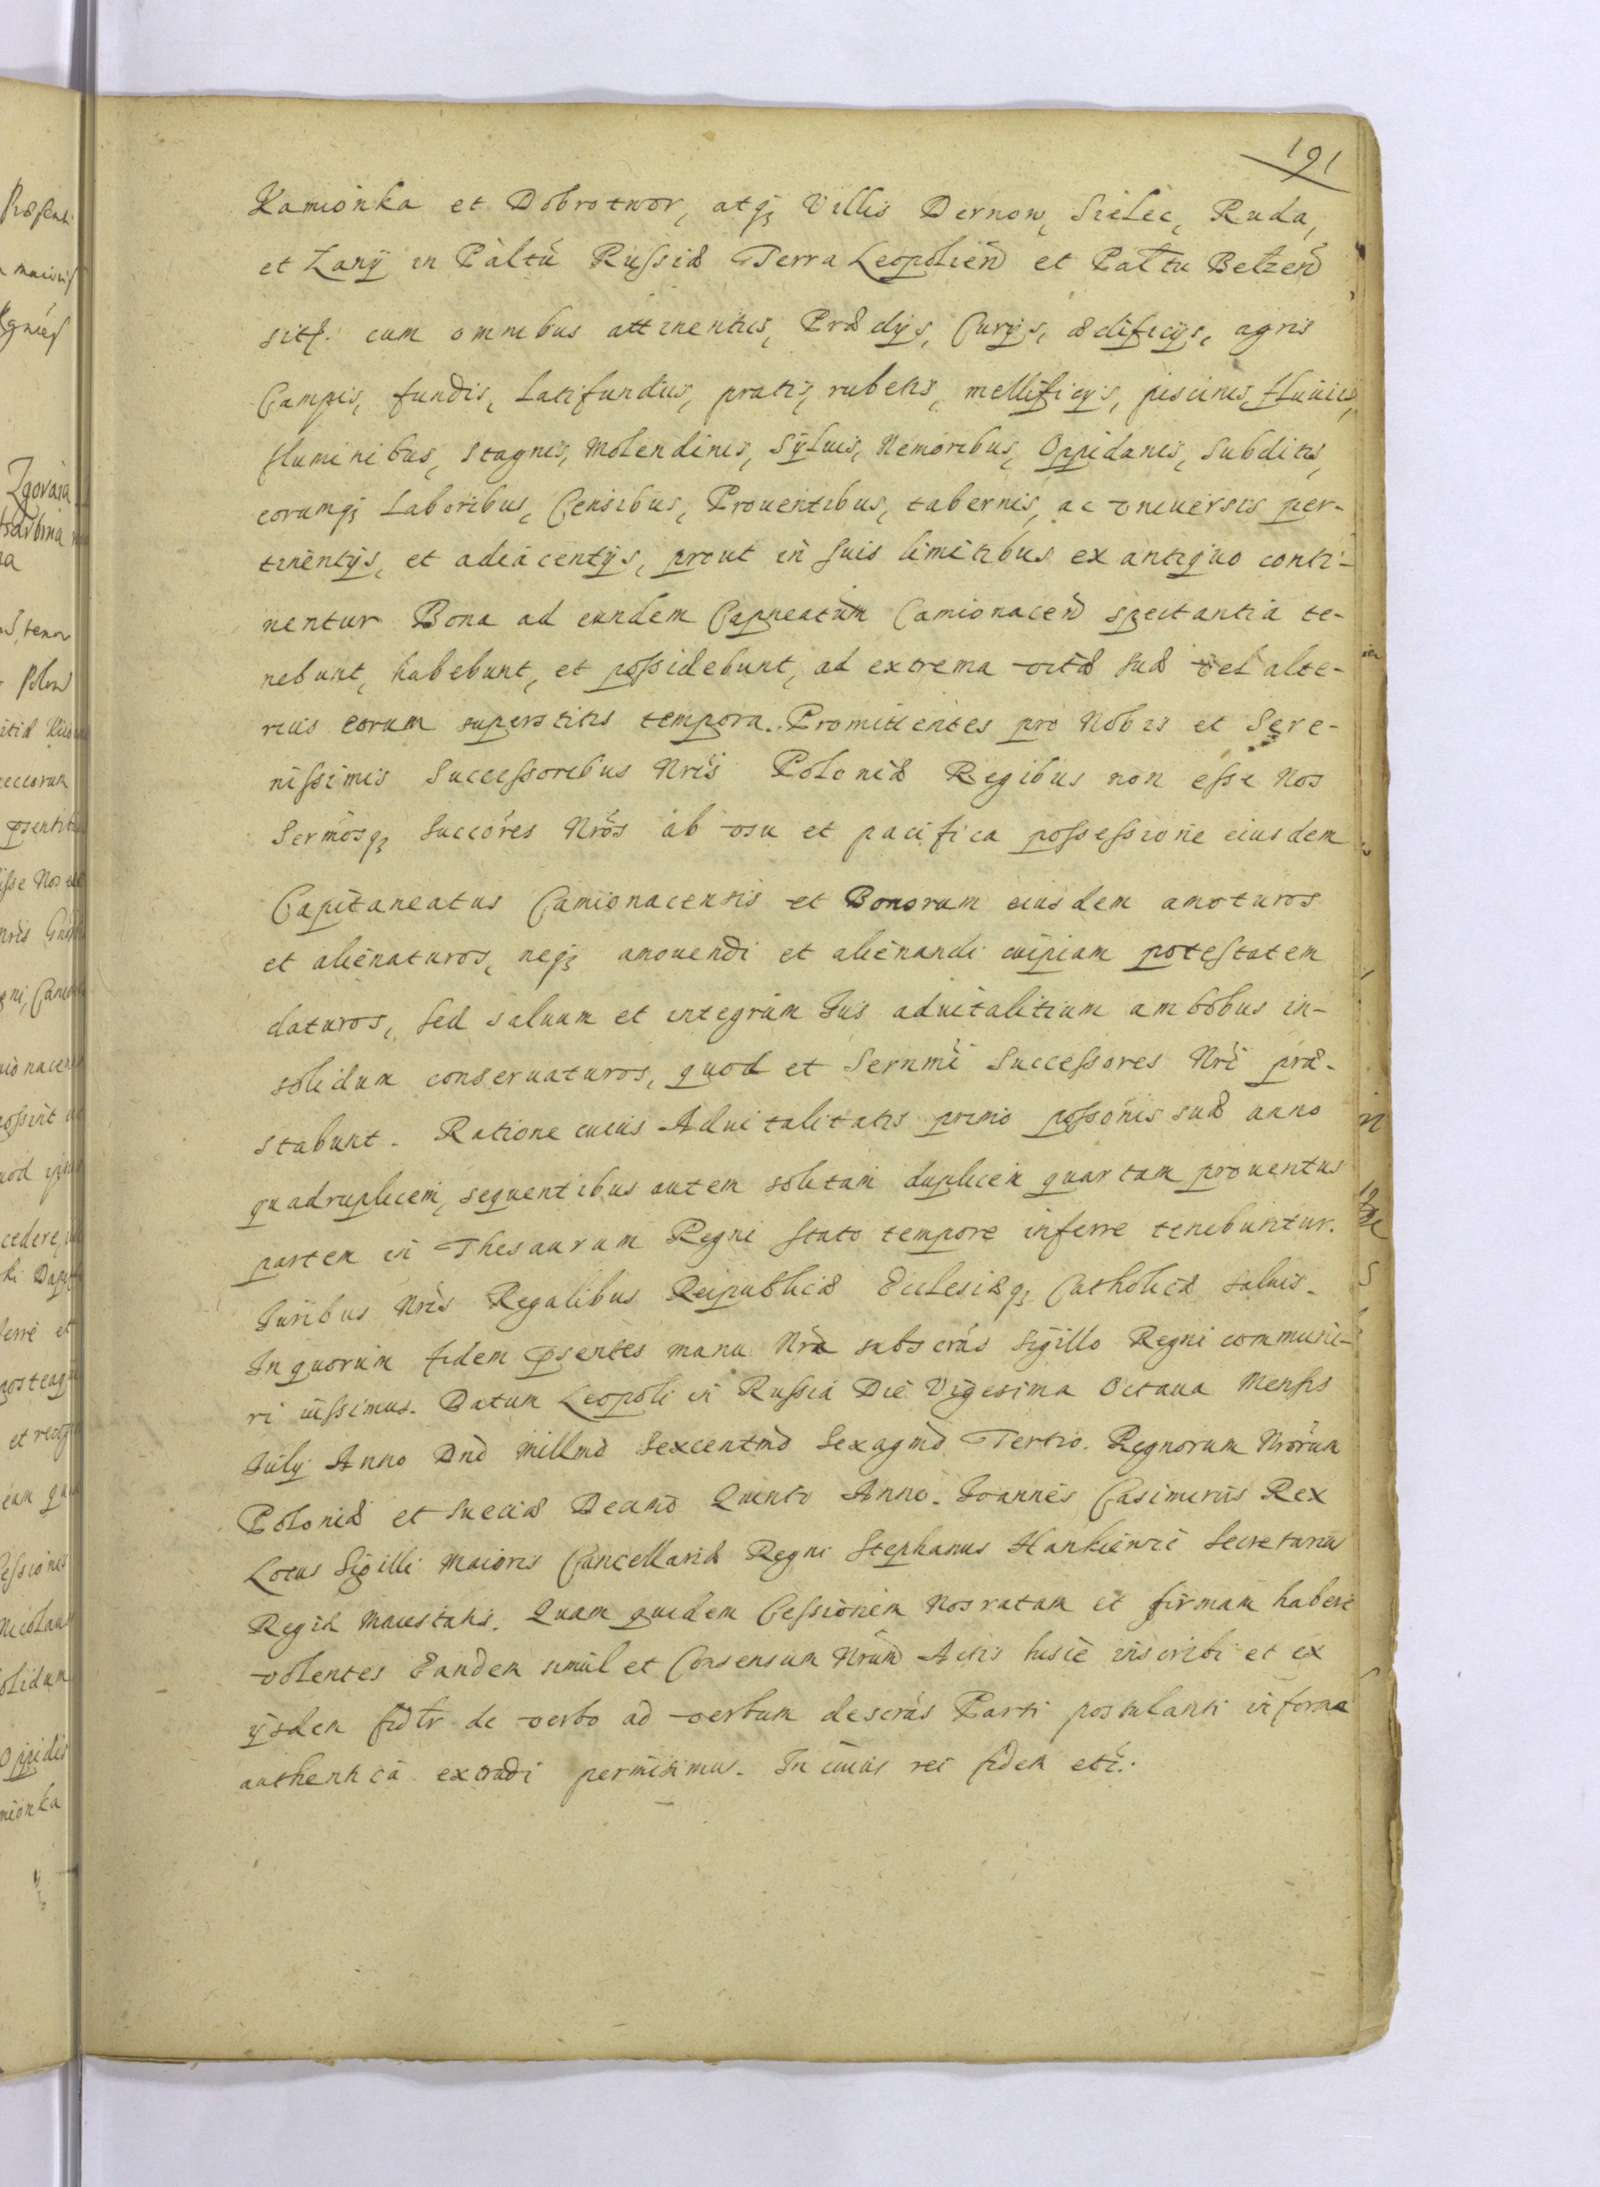 191
Kamionka et Dobrotwor, atq; Villis Dernow, Sielec, Ruda,
et Łany in Paltu Russiæ Terra Leopolien et Paltu Belzen
cum omnibus attinentiis, Prædijs, Curijs, ædificijs, agris
Campis, fundis, Latifundiis, pratis, rubetis, mellificijs, piscinis, fluuiis,
fluminibus, stagnis, Molendinis, Syluis, Nemoribus, Oppidanis, Subditis,
eorumq; Laboribus, Censibus, Prouentibus, tabernis, ac vniuersis per-
tinentijs, et adiacentijs, prout in suis limitibus ex antiquo conti-
nentur Bona ad eundem Capneatum Camionacen spectantia te-
nebunt, habebunt, et possidebunt, ad extrema vitæ suæ vel alte-
rius eorum superstitis tempora. Promittentes pro Nobis et Sere-
nissimis Successoribus Nris Poloniæ Regibus non esse Nos
Sermosq; Succores Nros ab vsu et pacifica possessione eiusdem
Capitaneatus Camionacensis et Bonorum eiusdem amoturos
et alienaturos, neq; amouendi et alienandi cuipiam potestatem
daturos, sed saluum et integrum Jus aduitalitium ambobus in-
solidum conseruaturos, quod et Sernmi Successores Nri præ-
stabunt. Ratione cuius Aduitalitatis primo possonis suæ anno
quadruplicem, sequentibus autem solitam duplicem quartam prouentus
partem in Thesaurum Regni stato tempore inferre tenebuntur.
Juribus Nris Regalibus Reipublicæ Ecclesiæq; Catholicæ saluis.
In quorum fidem psentes manu Nra subscras Sigillo Regni communi-
ri iussimus. Datum Leopoli in Russia Die Vigesima Octaua Mensis
July Anno Dni Millmo Sexcentmo Sexagmo Tertio. Regnorum Nrorum
Poloniæ et Sueciæ Decimo Quinto Anno. Joannes Casimirus Rex
Locus Sigilli Maioris Cancellariæ Regni Stephanus Hankiewic Secretarius
Regiæ Maiestatis. Quam quidem Cessionem Nos ratam et firmam habere
volentes Eandem simul et Consensum Nrum Actis hisce inscribi et ex
ijsdem fidlr de verbo ad verbum descras Parti postulanti in forma
authentica extradi permisimus. In cuius rei fidem etc.